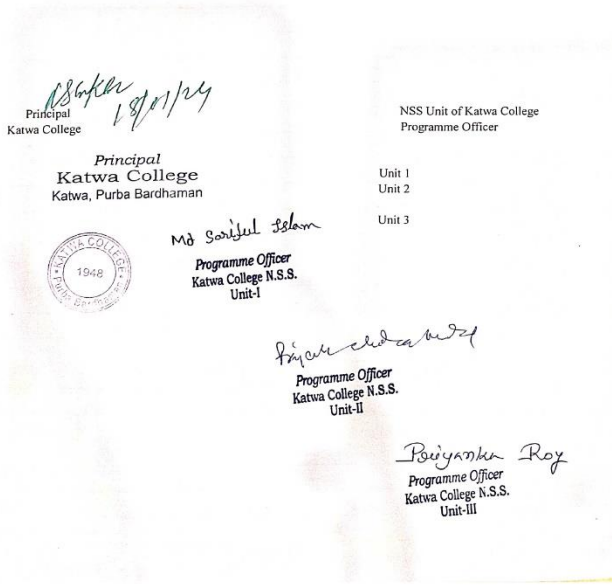 18/01/24
Principal
Katwa College
Principal
Katwa College
Katwa, Purba Bardhaman
KATWA COLLEGE
1948
Purba Bardhaman
NSS Unit of Katwa College
Programme Officer
Unit 1
Unit 2
Unit 3
Md Sariful Islam
Programme Officer
Katwa College N.S.S.
Unit-I
Programme Officer
Katwa College N.S.S.
Unit-II
Priyanka Roy
Programme Officer
Katwa College N.S.S.
Unit-III